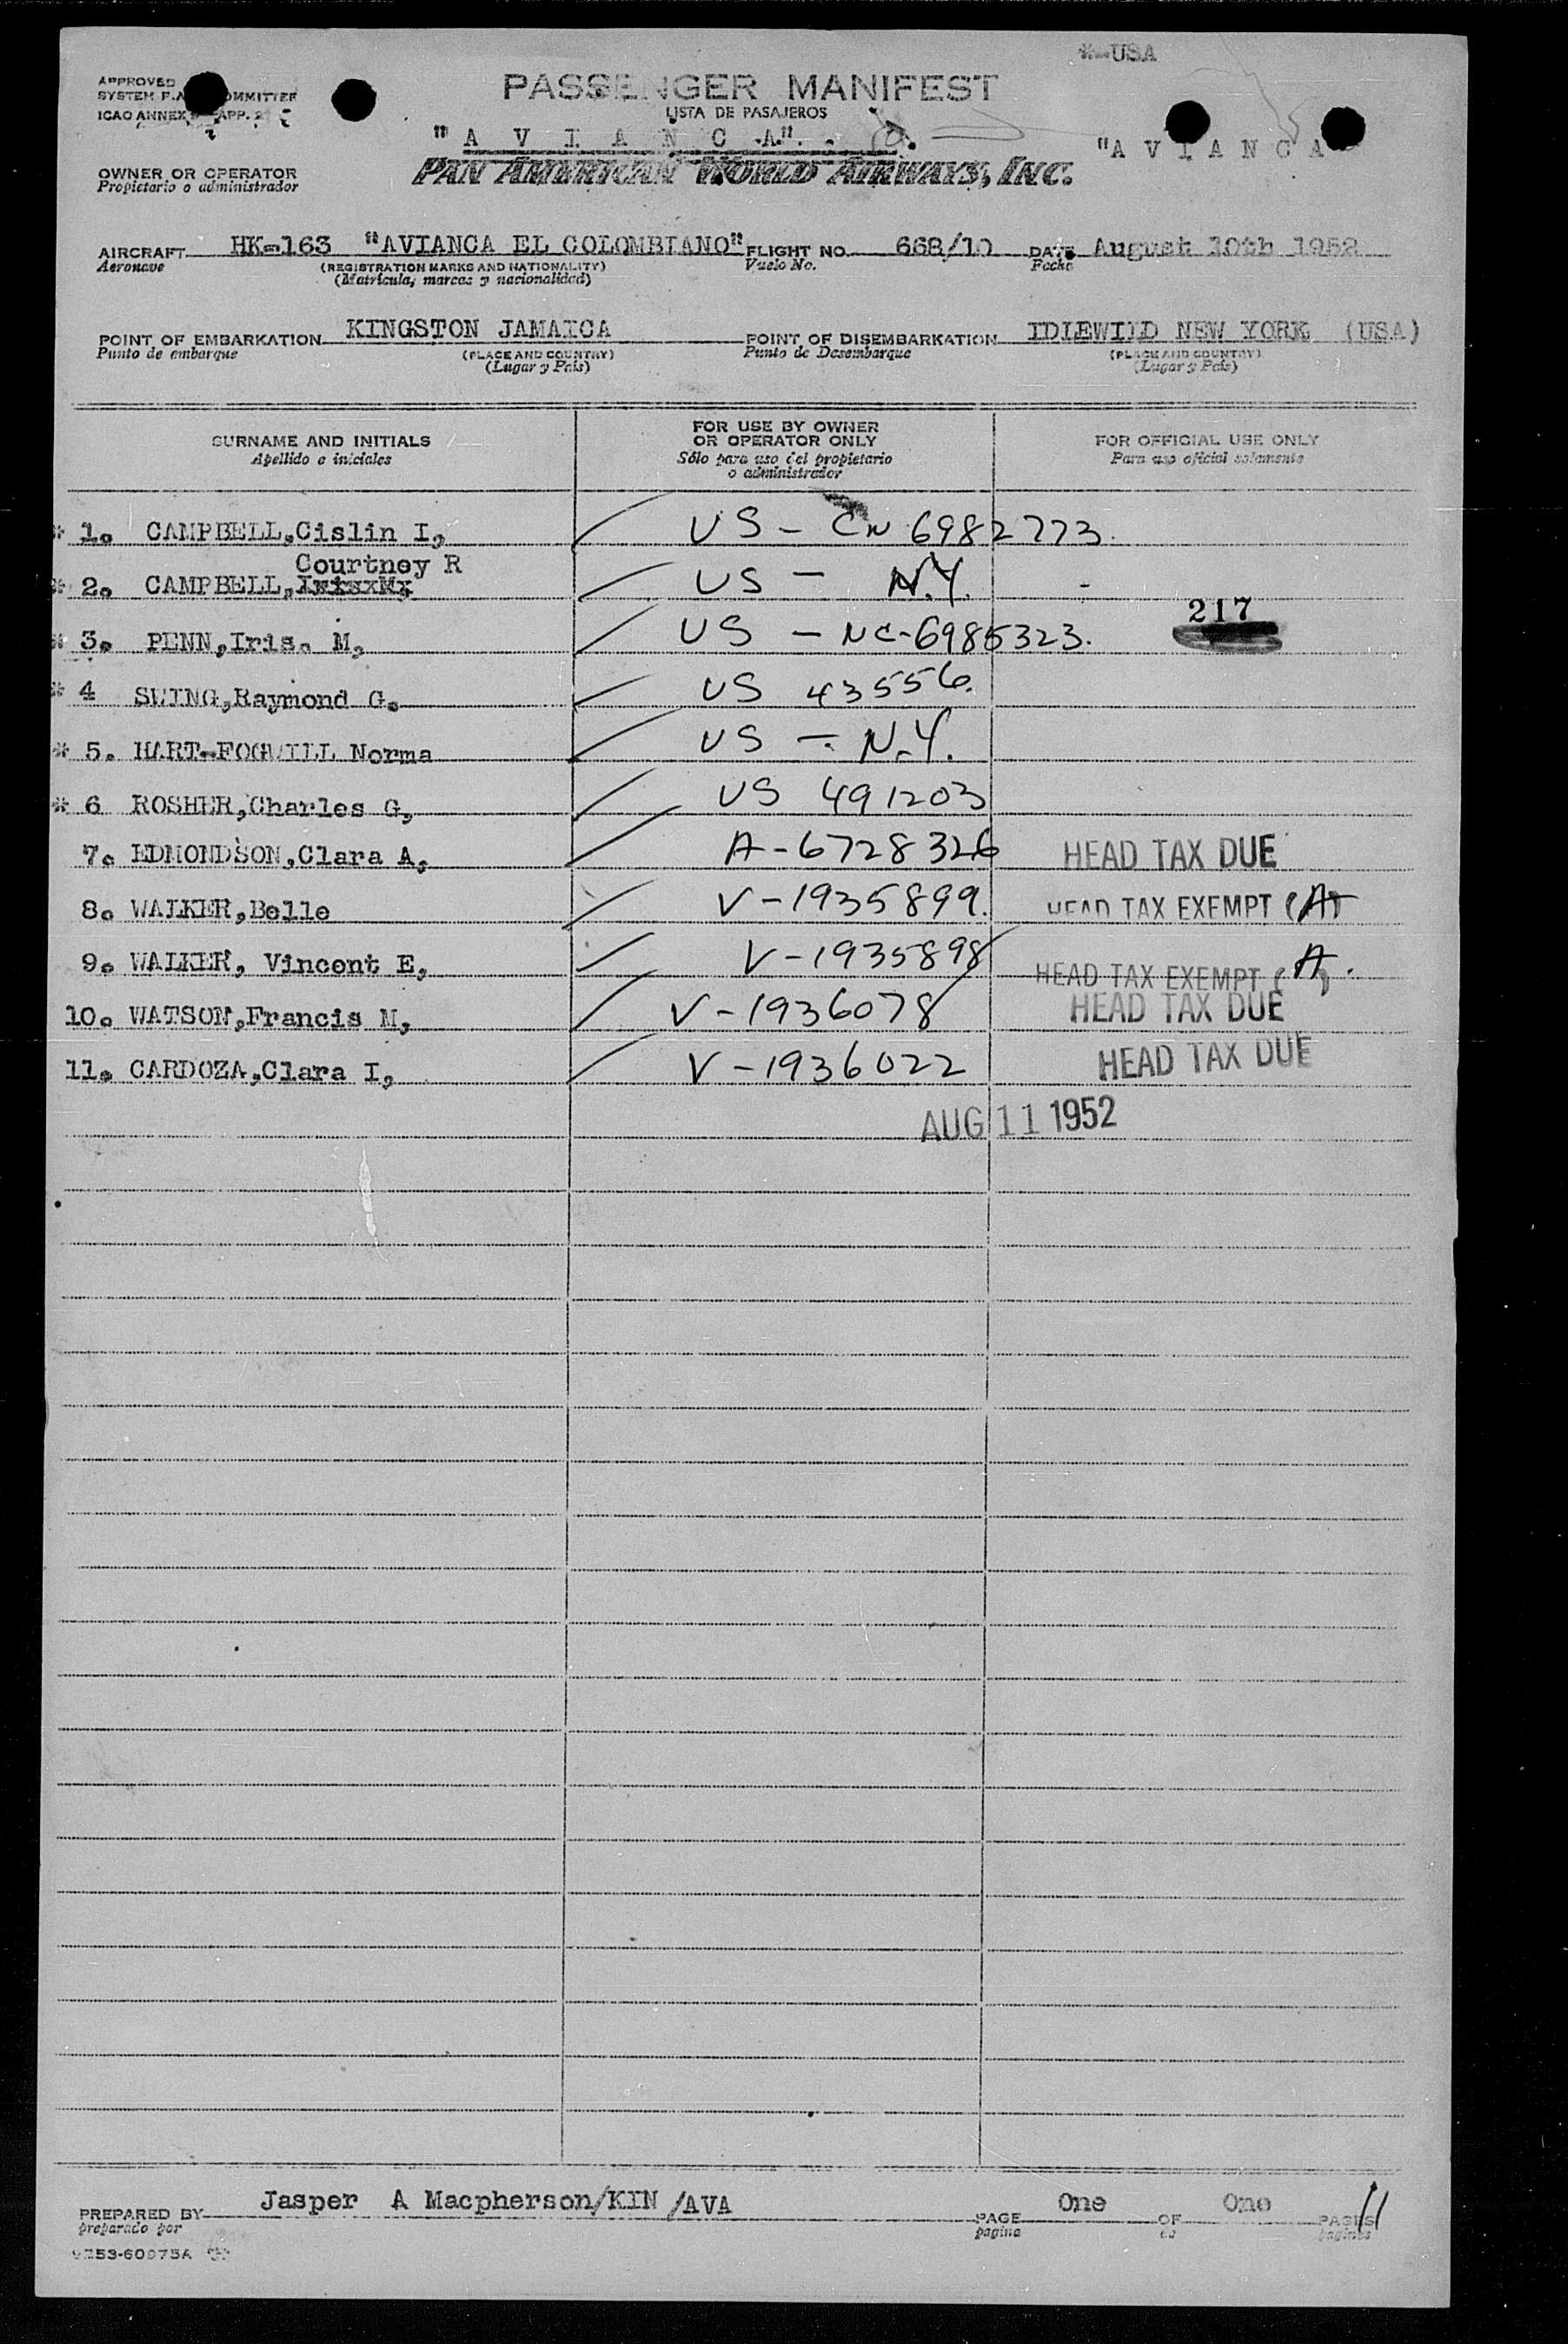 *-USA
APPROVED
SYSTEM F.A. COMMITTEE
ICAO ANNEX APP. 2
PASSENGER MANIFEST
LISTA DE PASAJEROS
"A V I A N C A"
"A V I A N C A
OWNER OR OPERATOR
Propietario o administrador
PAN AMERICAN WORLD AIRWAYS, INC.
AIRCRAFT HK-163 "AVIANCA EL COLOMBIANO" FLIGHT NO. 668/10 DATE August 10th 1952
Aeronave (REGISTRATION MARKS AND NATIONALITY) Vuelo No. Fecha
(Matricula, marcas y nacionalidad)
POINT OF EMBARKATION KINGSTON JAMAICA POINT OF DISEMBARKATION IDLEWILD NEW YORK (USA)
Punto de embarque (PLACE AND COUNTRY) Punto de Desembarque (PLACE AND COUNTRY)
(Lugar y Pais) (Lugar y Pais)
SURNAME AND INITIALS
Apellido e iniciales
FOR USE BY OWNER
OR OPERATOR ONLY
Sólo para uso del propietario
o administrador
FOR OFFICIAL USE ONLY
Para uso oficial solamente
* 1. CAMPBELL, Cislin I, US - CN 6982773.
Courtney R
* 2. CAMPBELL, US - N.Y. -
217
* 3. PENN, Iris. M, US - NC-6985323.
* 4 SWING, Raymond G. US 43556.
* 5. HART-FOGWILL Norma US -. N.Y.
* 6 ROSHER, Charles G, US 491203
7. EDMONDSON, Clara A, A-6728326 HEAD TAX DUE
8. WALKER, Belle V-1935899. HEAD TAX EXEMPT (A)
9. WALKER, Vincent E, V-1935898 HEAD TAX EXEMPT (A).
10. WATSON, Francis M, V-1936078 HEAD TAX DUE
11. CARDOZA, Clara I, V-1936022 HEAD TAX DUE
AUG 11 1952
PREPARED BY Jasper A Macpherson/KIN /AVA PAGE One OF One PAGES 11
preparado por pagina de paginas